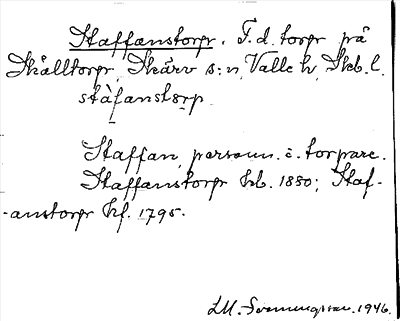 Staffanstorp. F. d. torp på
Skålltorp, Skärv s:n, Valle h, Skb. l.
stàfanstɷrp
Staffan, personn. å torpare.
Staffanstorp hb. 1880; Staf-
-anstorp hf. 1795.
LM. Svenungsson. 1946.